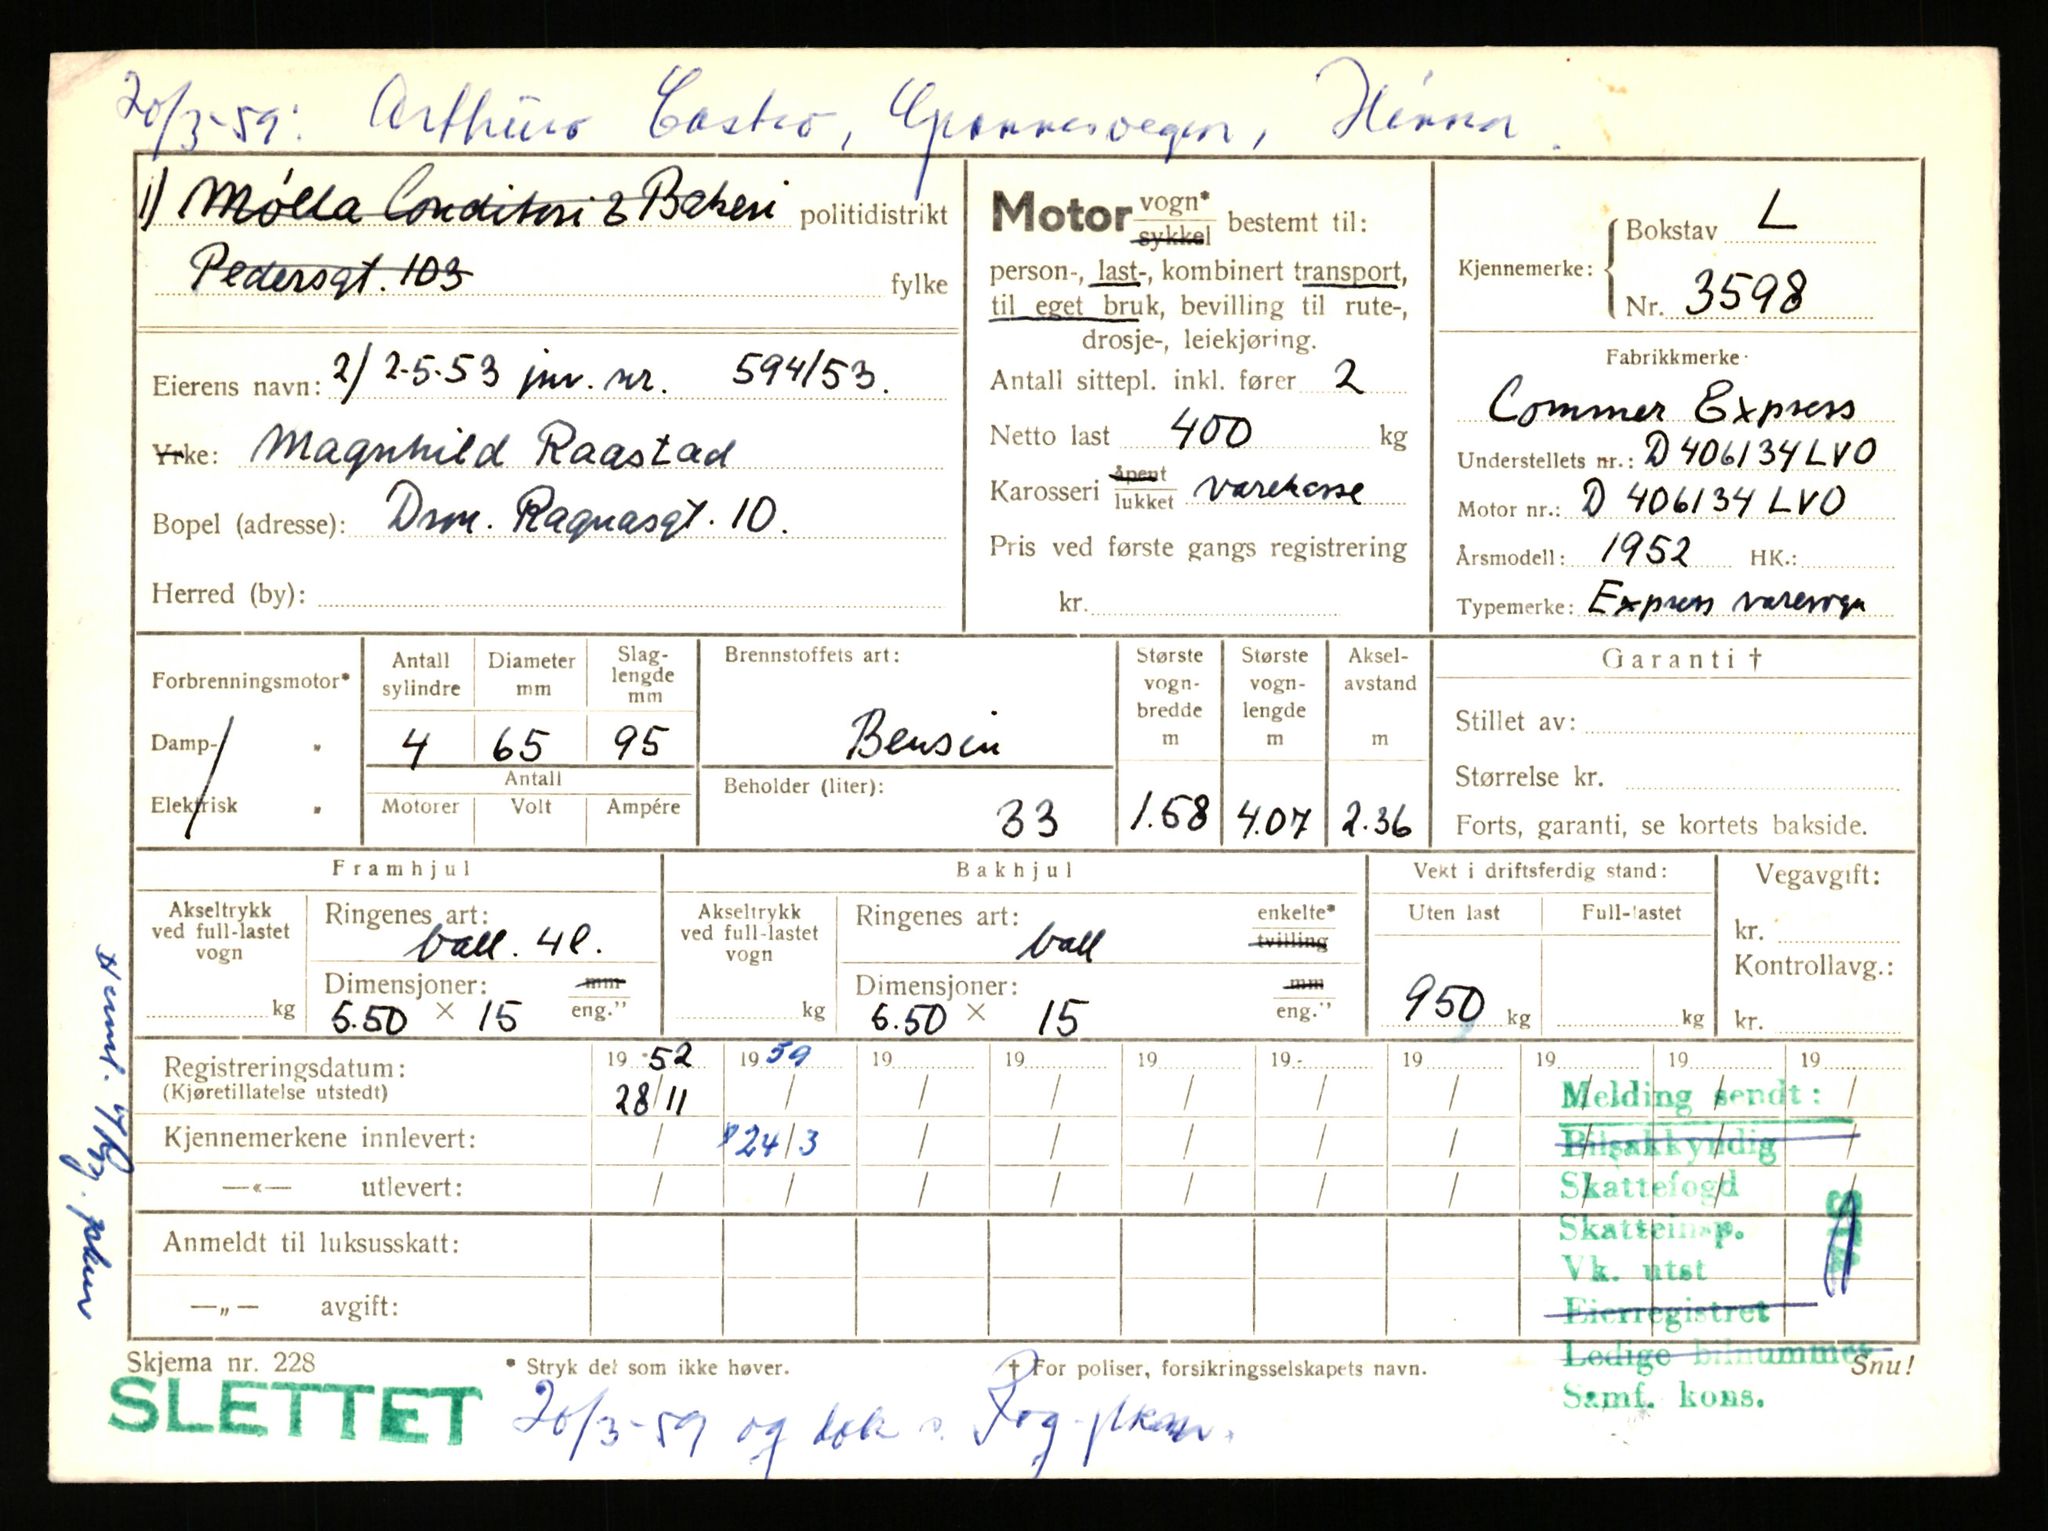 20/3-59: Arthur Castro, , Hinna
1) Mølla Conditori & Bakeri politidistrikt
Pedersgt. 103 fylke
Eierens navn: 2/ 2-5-53 jnr. nr. 594/53.
Yrke: Magnhild Raastad
Bopel (adresse): Drm. Ragnasgt. 10.
Herred (by):
Motor vogn* sykkel bestemt til:
person-, last-, kombinert transport,
til eget bruk, bevilling til rute-,
drosje-, leiekjøring.
Antall sittepl. inkl. fører 2
Netto last 400 kg
Karosseri åpent lukket varekasse
Pris ved første gangs registrering
kr.
Kjennemerke: Bokstav L
Nr. 3598
Fabrikkmerke
Commer Express
Understellets nr.: D 406134 LVO
Motor nr.: D 406134 LVO
Årsmodell: 1952 HK.:
Typemerke: Express varevogn
Forbrenningsmotor*
Damp- „
Elektrisk „
Antall sylindre
Diameter mm
Slag-lengde mm
4 65 95
Antall
Motorer Volt Ampére
Brennstoffets art:
Bensin
Beholder (liter):
33
Største vogn-bredde m
1.58
Største vogn-lengde m
4.07
Aksel-avstand m
2.36
Garanti †
Stillet av:
Størrelse kr.
Forts, garanti, se kortets bakside.
Framhjul
Akseltrykk ved full-lastet vogn
kg
Ringenes art:
ball. 4l.
Dimensjoner: mm
5.50 × 15 eng.”
Bakhjul
Akseltrykk ved full-lastet vogn
kg
Ringenes art: enkelte*
ball tvilling
Dimensjoner: mm
5.50 × 15 eng.”
Vekt i driftsferdig stand:
Uten last Full-lastet
950 kg kg
Vegavgift:
kr.
Kontrollavg.:
kr.
Registreringsdatum: 19 52 19 59 19 19 19 19 19 19 19 19
(Kjøretillatelse utstedt) 28/11 / / / / / / / / /
Kjennemerkene innlevert: / 24/3 / / / / / / / /
—«— utlevert: / / / / / / / / / /
Anmeldt til luksusskatt:
—„— avgift:
Melding sendt:
Bilsakkyndig
Skattefogd
Skatteinsp.
Vk. utst
Eierregistret
Ledige bilnummer
Samf. kons.
Skjema nr. 228
* Stryk det som ikke høver.
† For poliser, forsikringsselskapets navn.
Snu!
SLETTET
20/3-59 og